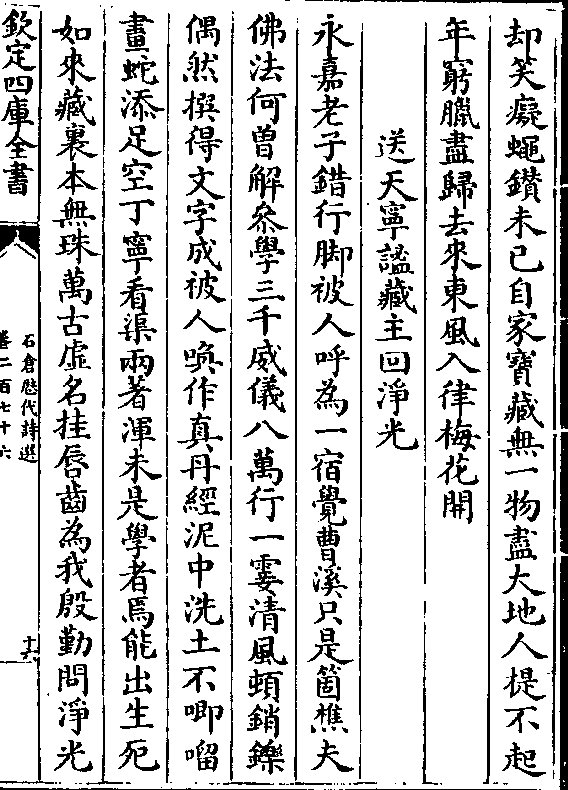 却笑癡蠅鑚未已自家寶藏無一物盡大地人提不起
年窮臘盡歸去來東風入律梅花開
送天寧謐藏主回淨光
永嘉老子錯行脚被人呼為一宿覺曹溪只是箇樵夫
佛法何曽解叅學三千威儀八萬行一霎清風頓銷鑠
偶然撰得文字成被人喚作真丹經泥中洗土不唧㗂
畫蛇添足空丁寧看渠兩著渾未是學者焉能出生死
如來藏裏本無珠萬古虚名挂唇齒為我殷勤問淨光
欽定四庫全書
石倉歴代詩選
卷二百七十六
十六